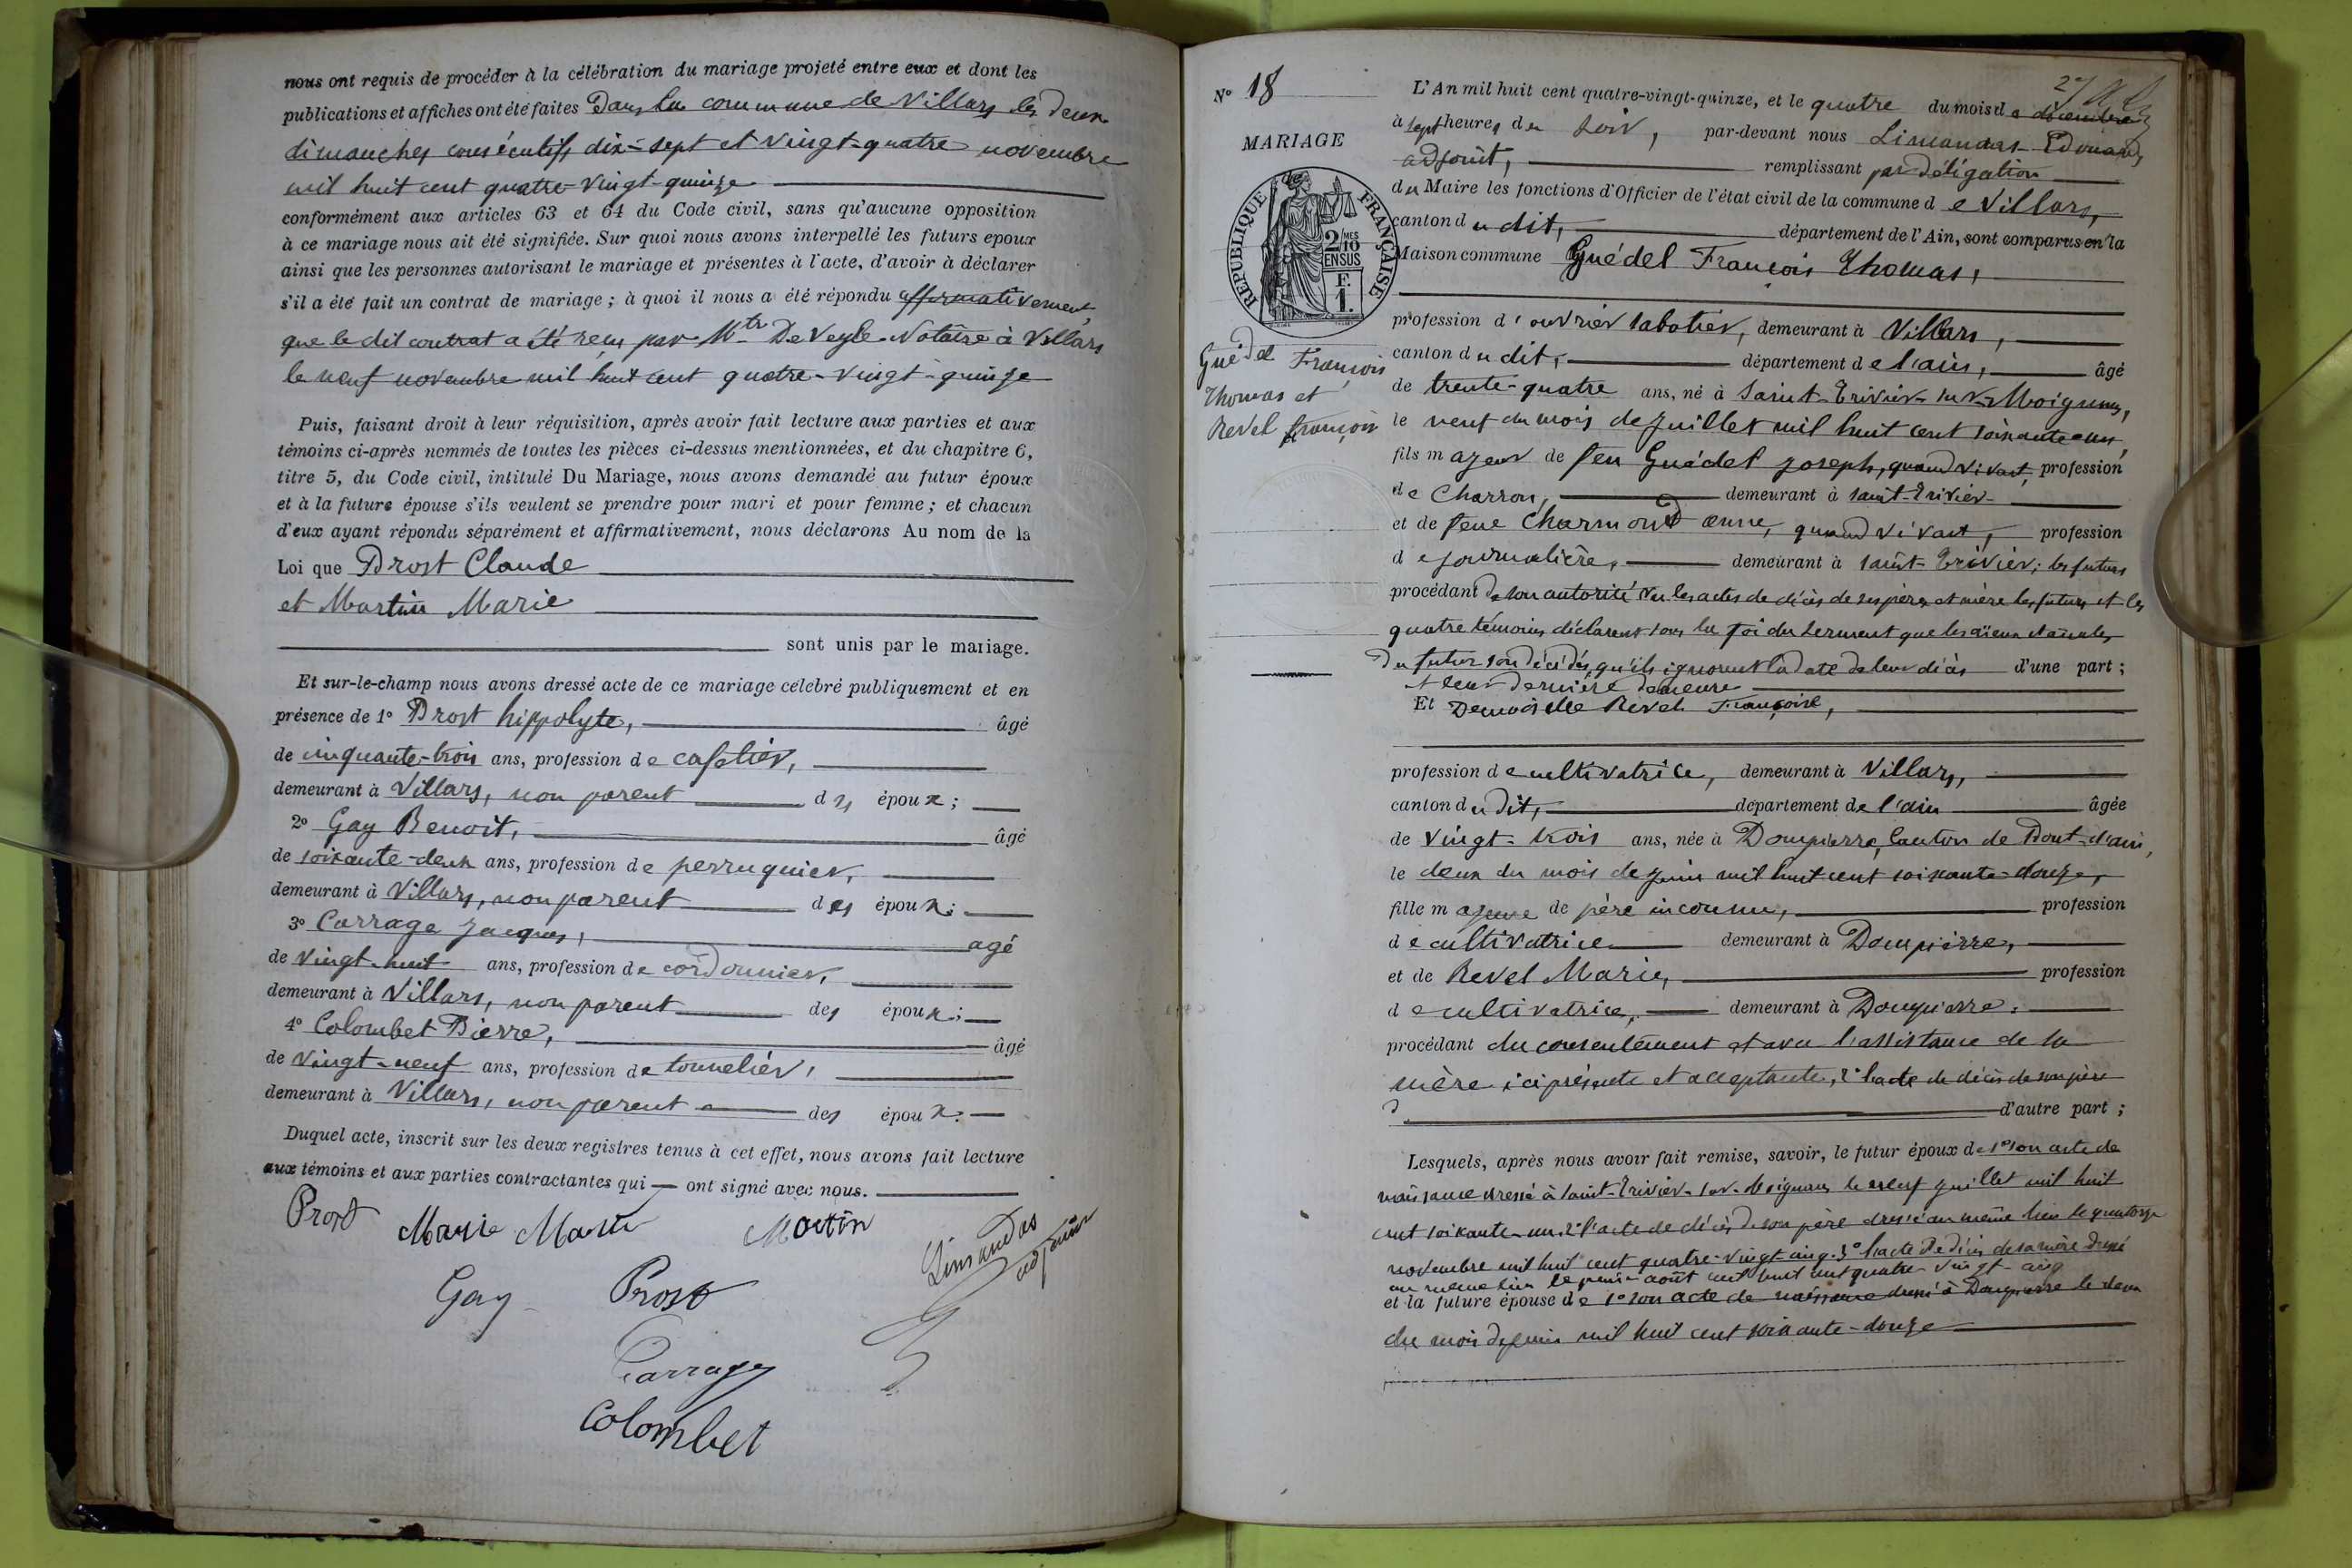 nous ont requis de procéder à la célébration du mariage projeté entre eux et dont les
publications et affiches ont été faites Dans la commune de Villars les deux
dimanches consécutifs dix-sept et vingt-quatre novembre
mil huit cent quatre-vingt-quinze
conformément aux articles 63 et 64 du Code civil, sans qu'aucune opposition
à ce mariage nous ait été signifiée. Sur quoi nous avons interpellé les futurs epoux
ainsi que les personnes autorisant le mariage et présentes à l'acte, d'avoir à déclarer
s'il a été fait un contrat de mariage ; à quoi il nous a été répondu affirmativement,
que le dit contrat a été reçu par Mtr De Veyle Notaire à Villars
le neuf novembre mil huit cent quatre-vingt-quinze
Puis, faisant droit à leur réquisition, après avoir fait lecture aux parties et aux
témoins ci-après nommés de toutes les pièces ci-dessus mentionnées, et du chapitre 6,
titre 5, du Code civil, intitulé Du Mariage, nous avons demandé au futur époux
et à la future épouse s'ils veulent se prendre pour mari et pour femme ; et chacun
d'eux ayant répondu séparément et affirmativement, nous déclarons Au nom de la
Loi que Prost Claude
et Martin Marie
sont unis par le mariage.
Et sur-le-champ nous avons dressé acte de ce mariage célébré publiquement et en
présence de 1° Prost hippolyte, âgé
de cinquante-trois ans, profession de cafetier,
demeurant à Villars, non parent des époux ;
2° Gay Benoit, âgé
de soixante-deux ans, profession de perruquier,
demeurant à Villars, non parent des époux ;
3° Carrage Jacques, agé
de vingt-huit ans, profession de cordonnier,
demeurant à Villars, non parent des époux ;
4° Colombet Pierre, âgé
de vingt-neuf ans, profession de tonnelier,
demeurant à Villars, non parent des époux.
Duquel acte, inscrit sur les deux registres tenus à cet effet, nous avons fait lecture
aux témoins et aux parties contractantes qui ont signé avec nous.
Prost Marie Martin Martin
Limandas adjoint
Gay Prost
Carrage
Colombet
N° 18
MARIAGE
RÉPUBLIQUE FRANÇAISE
2/10 MES
EN SUS
F.
1.
Guédel François
Thomas et
Revel françoise
L'An mil huit cent quatre-vingt-quinze, et le quatre du mois de décembre
à sept heures du soir, par-devant nous Limandas Edouard,
adjoint, remplissant par délégation
du Maire les fonctions d'Officier de l'état civil de la commune de Villars,
canton dudit, département de l'Ain, sont comparus en la
Maison commune Guédel François Thomas,
profession d'ouvrier sabotier, demeurant à Villars,
canton dudit, département de l'ain, âgé
de trente-quatre ans, né à Saint-Trivier-sur-Moignans,
le neuf du mois de Juillet mil huit cent soixante-un,
fils majeur de feu Guédel Joseph, quand vivait, profession
de Charron, demeurant à saint-Trivier
et de feue Charmond anne, quand vivait, profession
de journalière, demeurant à saint-Trivier; les futurs
procédant de son autorité vu les actes de décès de ses père et mère les futurs et les
quatre témoins déclarent sous la foi du serment que les aïeux et aïeules
du futur son décédés, qu'ils ignorent la date de leur décès d'une part ;
et leur dernière demeure
Et Demoiselle Revel Françoise,
profession de cultivatrice, demeurant à Villars,
canton dudit, département de l'ain âgée
de vingt-trois ans, née à Dompierre, Canton de Pont-d'ain,
le deux du mois de juin mil huit cent soixante-douze,
fille majeure de père inconnu, profession
de cultivatrice demeurant à Dompierre,
et de Revel Marie, profession
de cultivatrice, demeurant à Dompierre.
procédant du consentement et avec l'assistance de sa
mère ici présente et acceptante, 2° l'acte de décès de son père
d'autre part ;
Lesquels, après nous avoir fait remise, savoir, le futur époux de 1° son acte de
naissance dressé à saint-Trivier-sur-Moignans le neuf juillet mil huit
cent soixante-un. 2° l'acte de décès de son père dressé au même lieu le quatorze
novembre mil huit cent quatre-vingt-cinq. 3° l'acte de décès de sa mère dressé
au même lieu le août huit cent quatre-vingt-cinq
et la future épouse de 1° son acte de naissance dressé à Dompierre le deux
du mois de juin mil huit cent soixante-douze